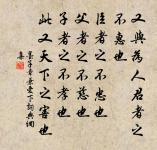 又與為人君者之
不惠也
臣者之不忠也
父者之不慈也
子者之不孝也
此又天下之害也
集